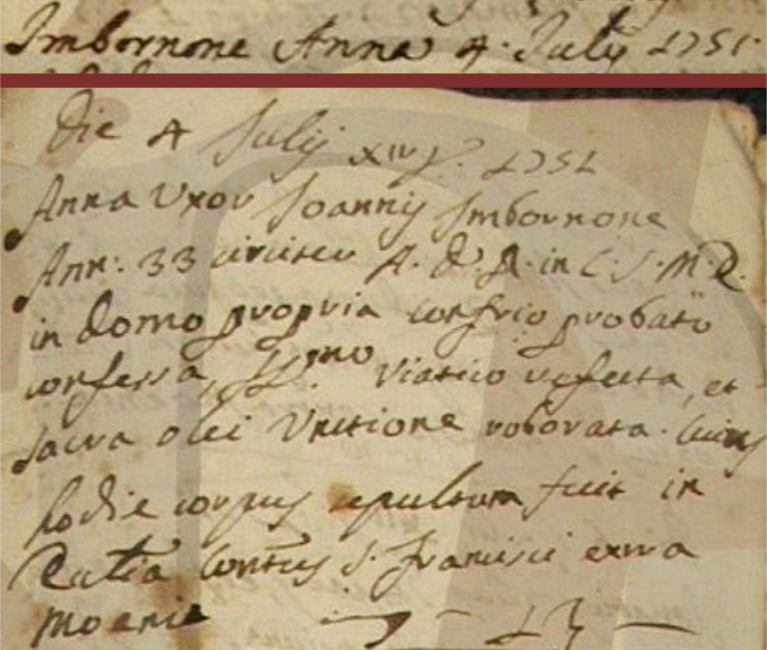 Imbornone Anna 4. July 1751.
Die 4 Julij xiv J. 1751
Anna Uxor Joannis Imbornone
Ann: 33 circiter A. D. R. in C. S. M. E.
in domo propria confrio probato
confessa, SS.mo Viatico refecta, et
sacra olei Unctione roborata. Cuius
hodie corpus sepultum fuit in
Eccl͂ia Contus S. Francisci extra
moenia